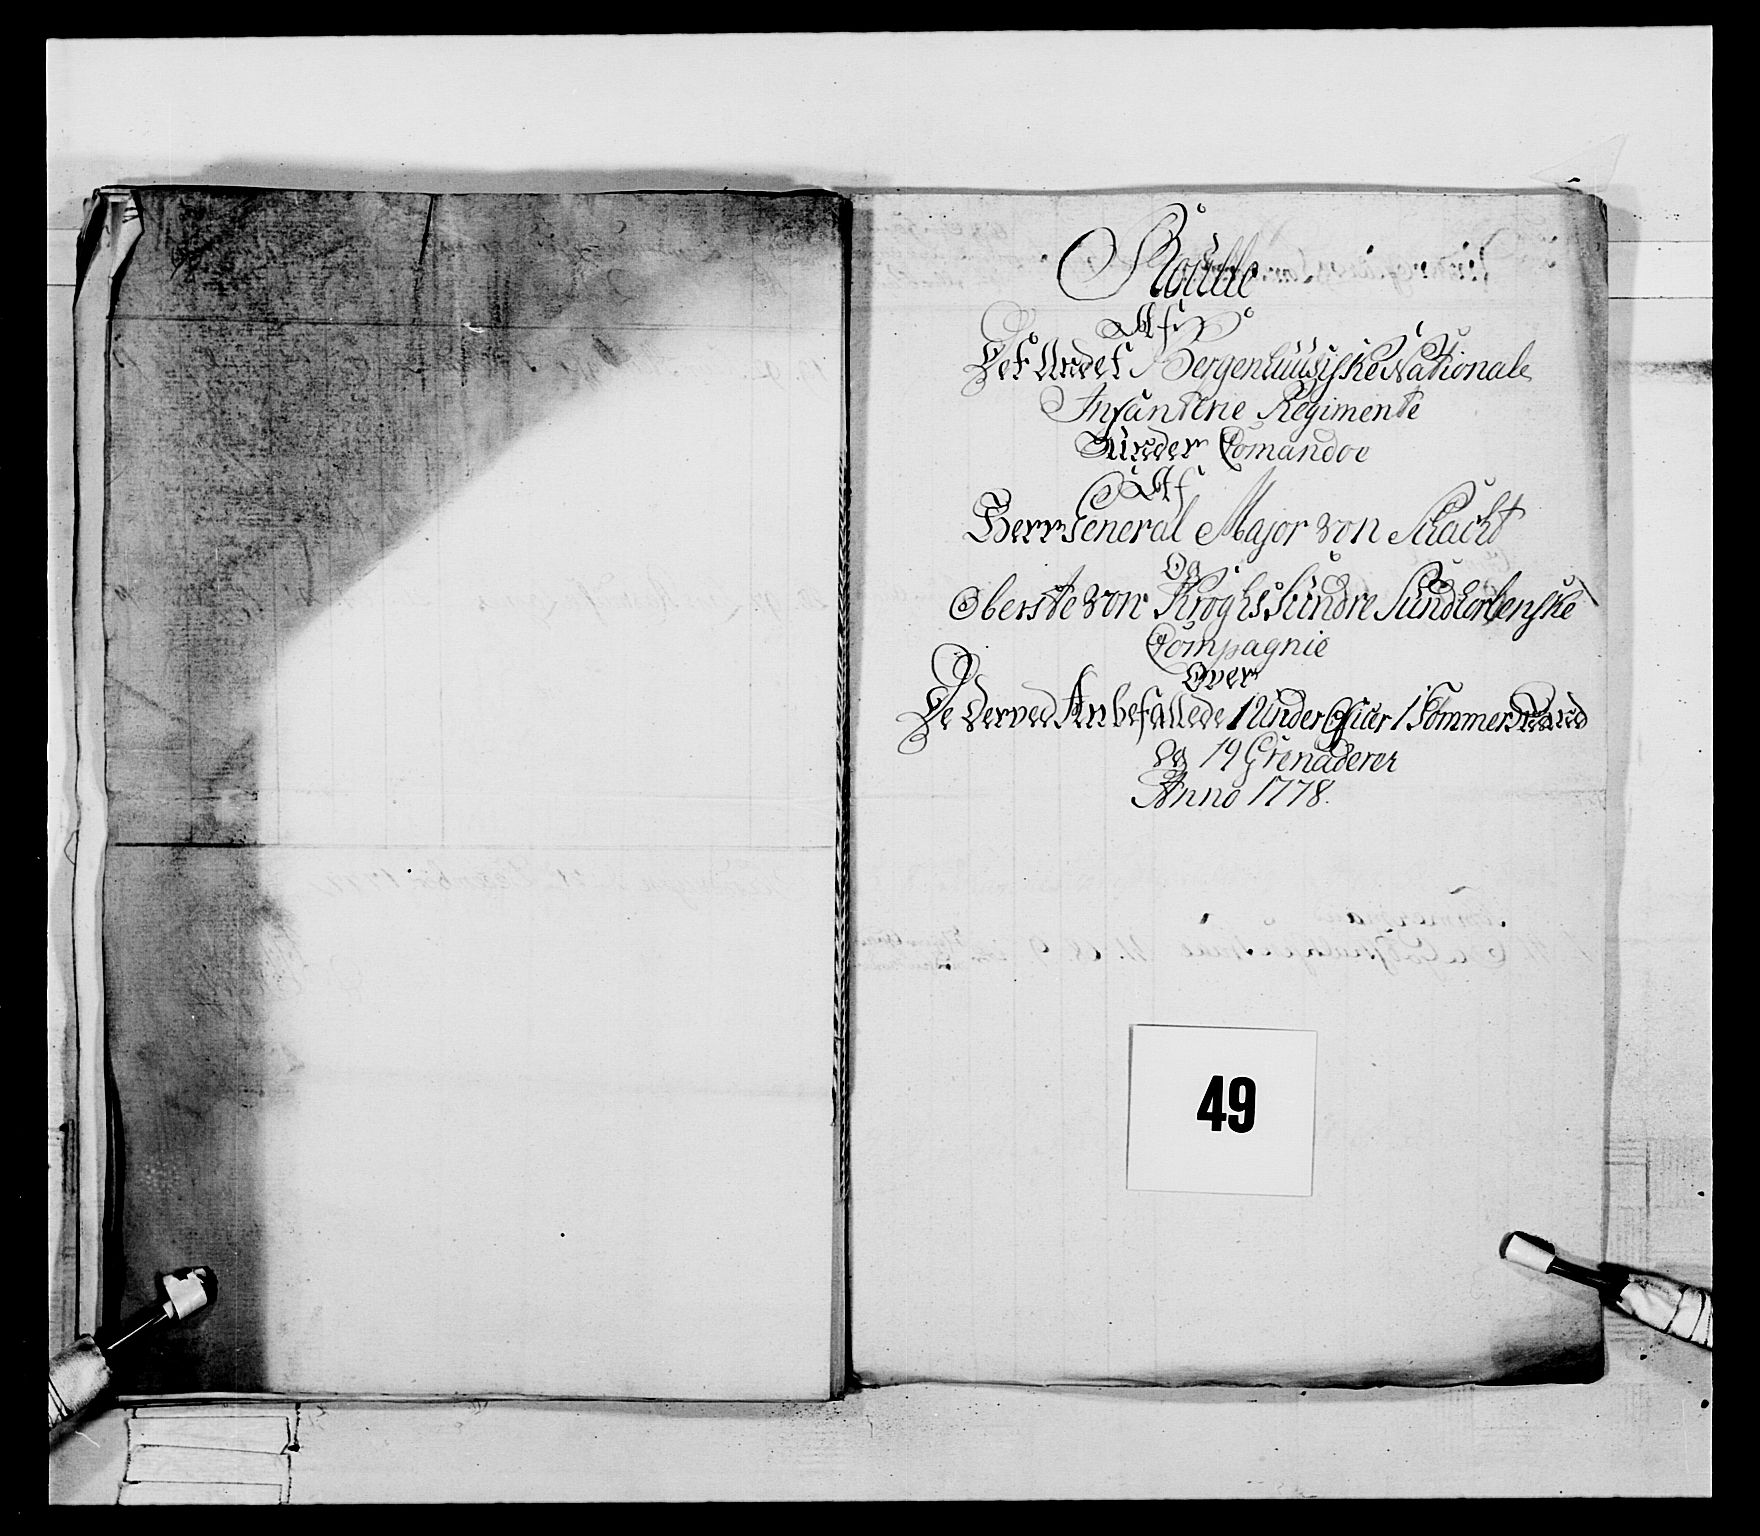 Roulle
Af
Det Andet Bergenhuusiske Nationale
Infanterie Regimente
Under Comandoe
Af
Herr General Major von Schacht
Og
Oberste von Kroghs Sundre Sundhorlenske
Compagnie
Over
De Derved Anbefallede 1 Under Officier 1 Tømmermand
og 19 Grenaderer
Anno 1778.
49